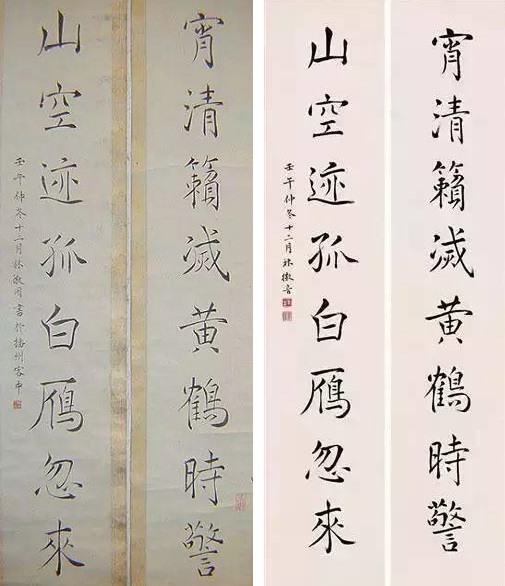 宵清籟滅黄鶴時警
山空迹孤白鴈忽來
壬午仲冬十二月林徽書於揚州客中
宵清籟滅黄鶴時警
山空迹孤白鴈忽來
壬午仲冬十二月林徽音